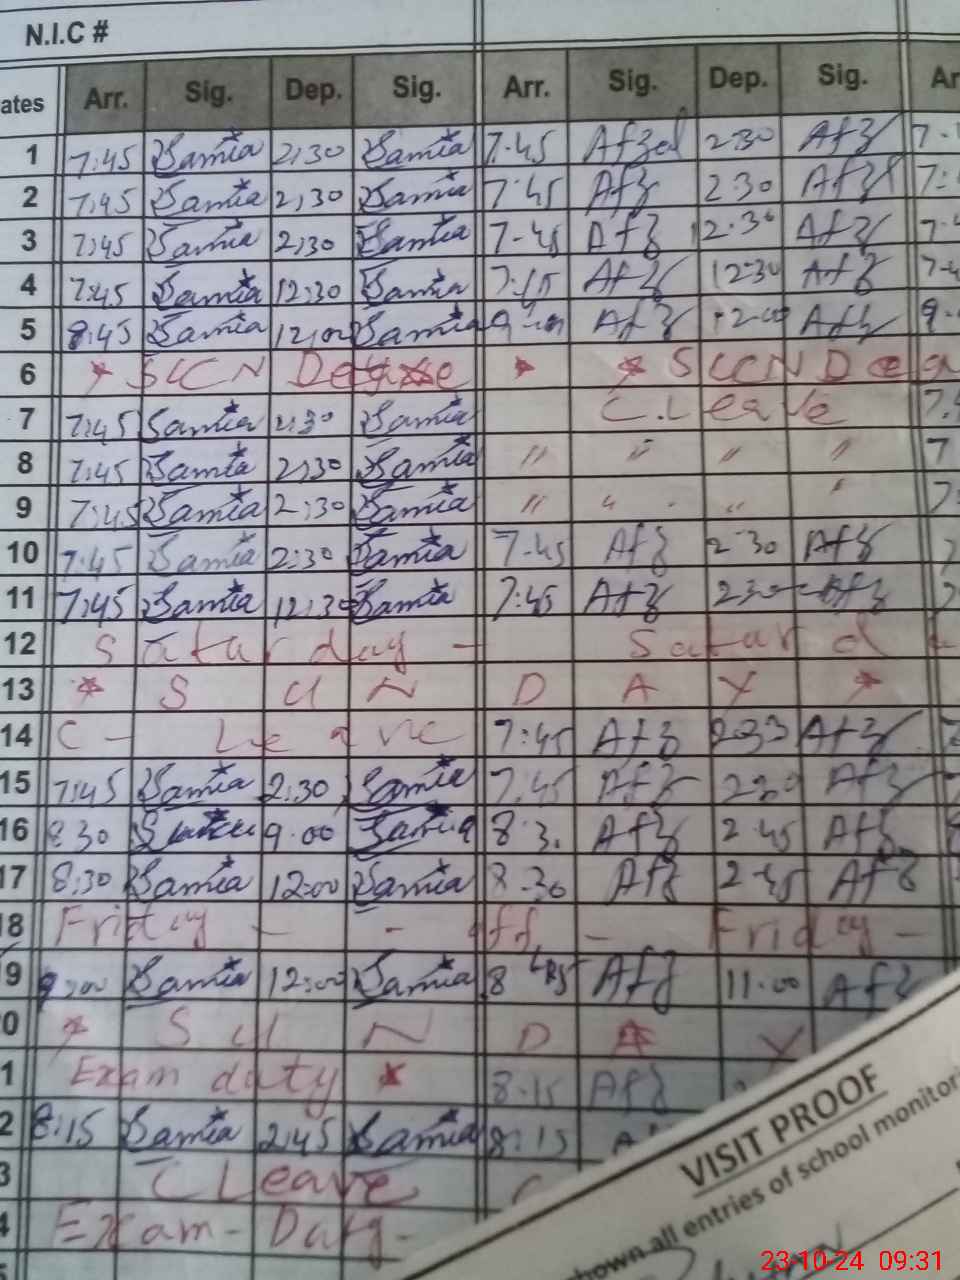 N.I.C #
ates Arr. Sig. Dep. Sig. Arr. Sig. Dep. Sig. Ar
1 7:45 Samia 2:30 Samia 7.45 Afzal 2.30 Afz 7.
2 7:45 Samia 2:30 Samia 7:45 Afz 2.30 Afz 7:
3 7:45 Samia 2:30 Samia 7-45 Afz 12.30 Afz 7.
4 7:45 Samia 12:30 Samia 7:45 Afz 12.30 Afz 7-
5 8:45 Samia 12:00 Samia Afz 12.00 Afz 9.
6 SUN
7 7:45 Samia 2:30 Samia C. Leave 7.
8 7:45 Samia 2:30 Samia " " " " 7
9 7:45 Samia 2:30 Samia " " " " 7
10 7:45 Samia 2:30 Samia 7.45 Afz 2.30 Afz
11 7:45 Samia 12:30 Samia 7:45 Afz 230 Afz
12 Saturday - Saturd
13 * SUN DAY *
14 C - Leave 7:45 Afz Afz
15 7:45 Samia 2:30 Samia 7:45 Afz 230 Afz
16 8 30 Samia 9.00 Samia 8 3. Afz 2.45 Afz
17 8:30 Samia 12:00 Samia 8.30 Afz 2.45 Afz
18 Friday - - off - Friday -
9 9:00 Samia 12:00 Samia 8 Afz 11.00 Afz
0 * SUN DAY
1 Exam duty * 8.15 Afz
2 8:15 Samia 2:45 Samia 8:15
3 C Leave
4 Exam - Duty -
VISIT PROOF
hown all entries of school monitori
23-10-24 09:31